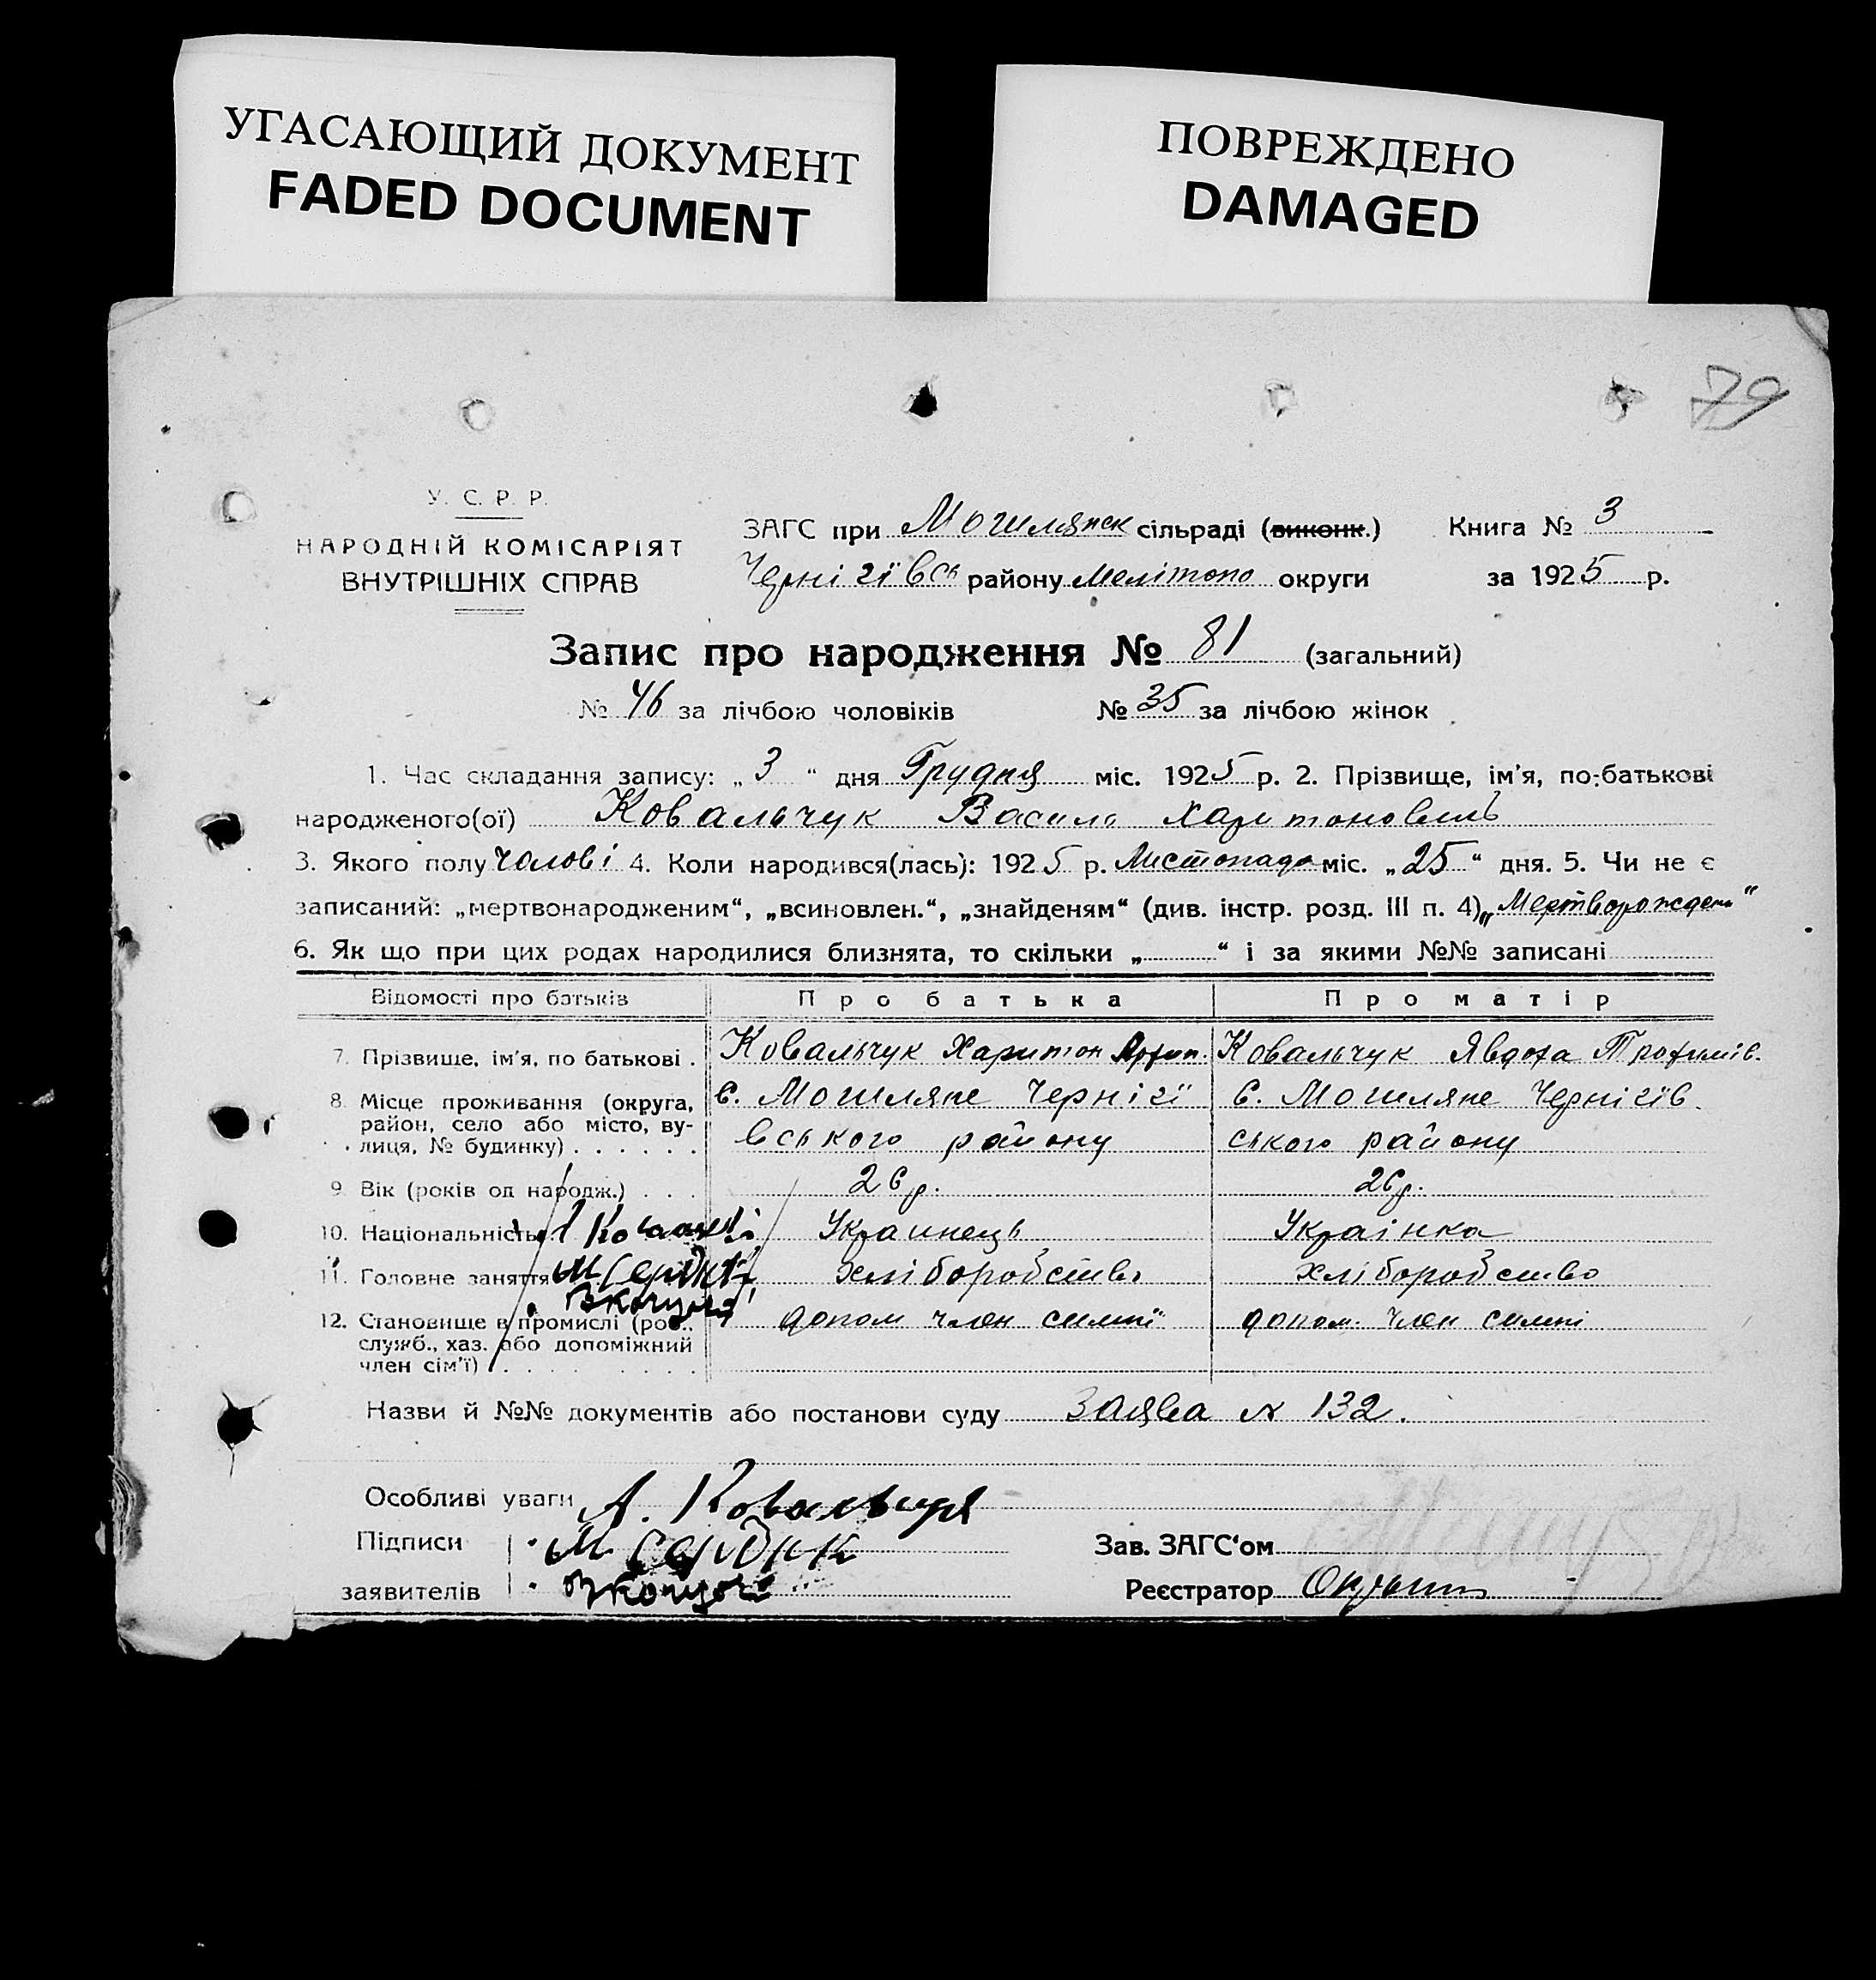 УГАСАЮЩИЙ ДОКУМЕНТ
FADED DOCUMENT
ПОВРЕЖДЕНО
DAMAGED
79
У. С. Р. Р.
НАРОДНІЙ КОМІСАРІЯТ
ВНУТРІШНІХ СПРАВ
ЗАГС при Могилянск сільраді (виконк.) Книга № 3
Чернігївсь району Мелітопо округи за 1925 р.
Запис про народження № 81 (загальний)
№ 46 за лічбою чоловіків № 35 за лічбою жінок
1. Час складання запису: „ 3 “ дня Грудня міс. 1925 р. 2. Прізвище, ім'я, по-батькові
народженого(ої) Ковальчук Василь Харитоновичь
3. Якого полу чолові 4. Коли народився(лась): 1925 р. Листопада міс. „25“ дня. 5. Чи не є
записаний: „мертвонародженим“, „всиновлен.“, „знайденям“ (див. інстр. розд. III п. 4) „Мертворожден“
6. Як що при цих родах народилися близнята, то скільки „ “ і за якими №№ записані
Відомості про батьків Про батька Про матір
7. Прізвище, ім'я, по батькові . Ковальчук Харитон Ковальчук Явдоха Трохимів.
8. Місце проживання (округа, с. Могиляне Чернігї с. Могиляне Чернігїв
район, село або місто, ву-
лиця, № будинку) . . . . . . вського району ського району
9. Вік (років од народж.) . . . 26 р. 26 р.
10. Національність Украинець Українка
11. Головне заняття М Сердюк хліборобство хліборобство
12. Становище в промислі (роб., допом член симпї допом. член симпі
служб., хаз. або допоміжний
член сім'ї) . . . . . . . .
Назви й №№ документів або постанови суду Заява № 132.
Особливі уваги А. Ковальчук
Підписи М Сердюк Зав. ЗАГС‘ом
заявителів Реєстратор